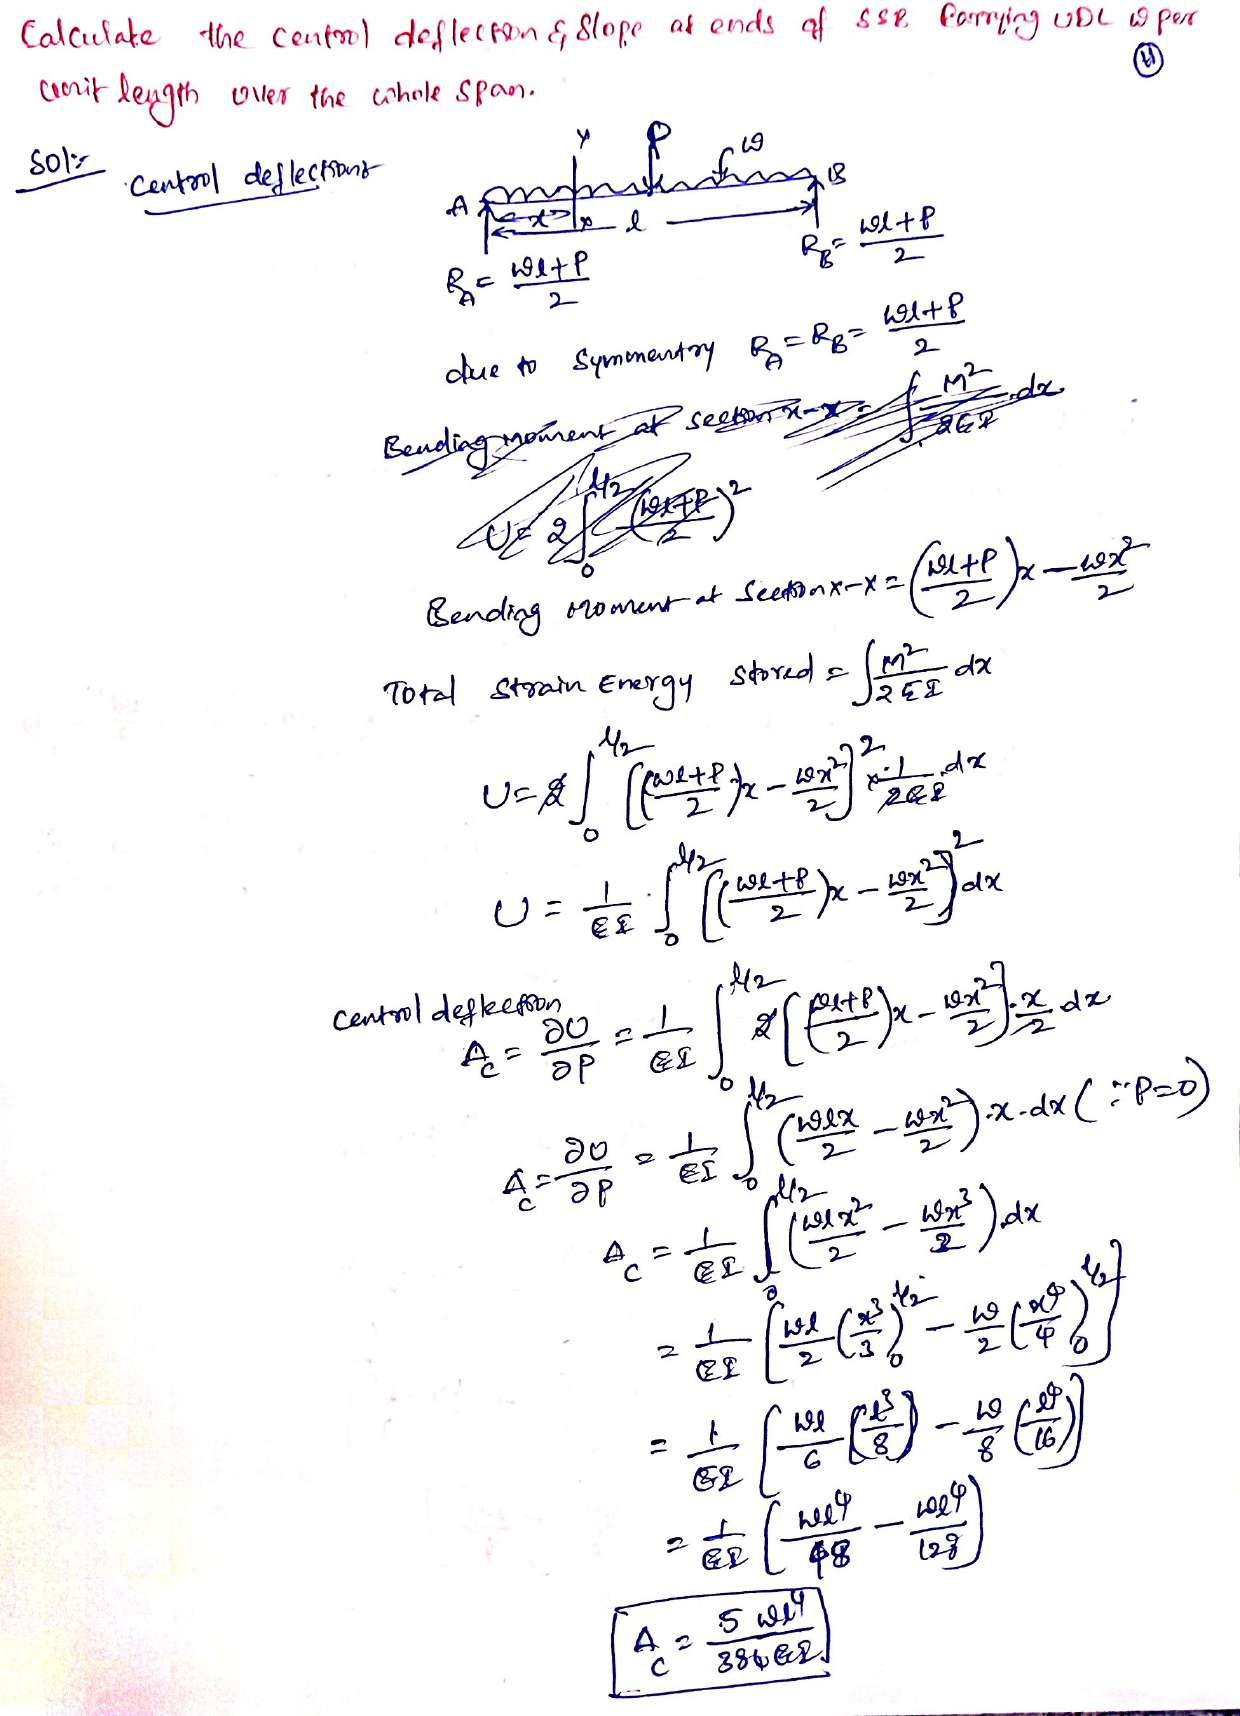 Calculate the central deflection & Slope at ends of SSB Carrying UDL w per
unit length over the whole span.
11
Sol:-
Central deflection:-
x P w
A B
x x l
R_A = (wl+P)/2
R_B = (wl+P)/2
due to Symmentry R_A = R_B = (wl+P)/2
Bending moment at section x-x = ∫ M²/2EI .dx
U = 2 ∫₀^{l/2} ((wl+P)/2)²
Bending moment at Section x-x = ((wl+P)/2)x − wx²/2
Total Strain Energy Stored = ∫ M²/2EI dx
U = 2 ∫₀^{l/2} [((wl+P)/2)x − wx²/2]² × 1/2EI .dx
U = 1/EI . ∫₀^{l/2} [((wl+P)/2)x − wx²/2]² dx
Central deflection
Δ_C = ∂U/∂P = 1/EI ∫₀^{l/2} 2[((wl+P)/2)x − wx²/2].x/2 dx
Δ_C = ∂U/∂P = 1/EI ∫₀^{l/2} (wlx/2 − wx²/2).x.dx (∵ P=0)
Δ_C = 1/EI ∫₀^{l/2} (wlx²/2 − wx³/2).dx
= 1/EI [wl/2 (x³/3)₀^{l/2} − w/2 (x⁴/4)₀^{l/2}]
= 1/EI [wl/6 (l³/8) − w/8 (l⁴/16)]
= 1/EI [wl⁴/48 − wl⁴/128]
Δ_C = 5wl⁴/384EI.